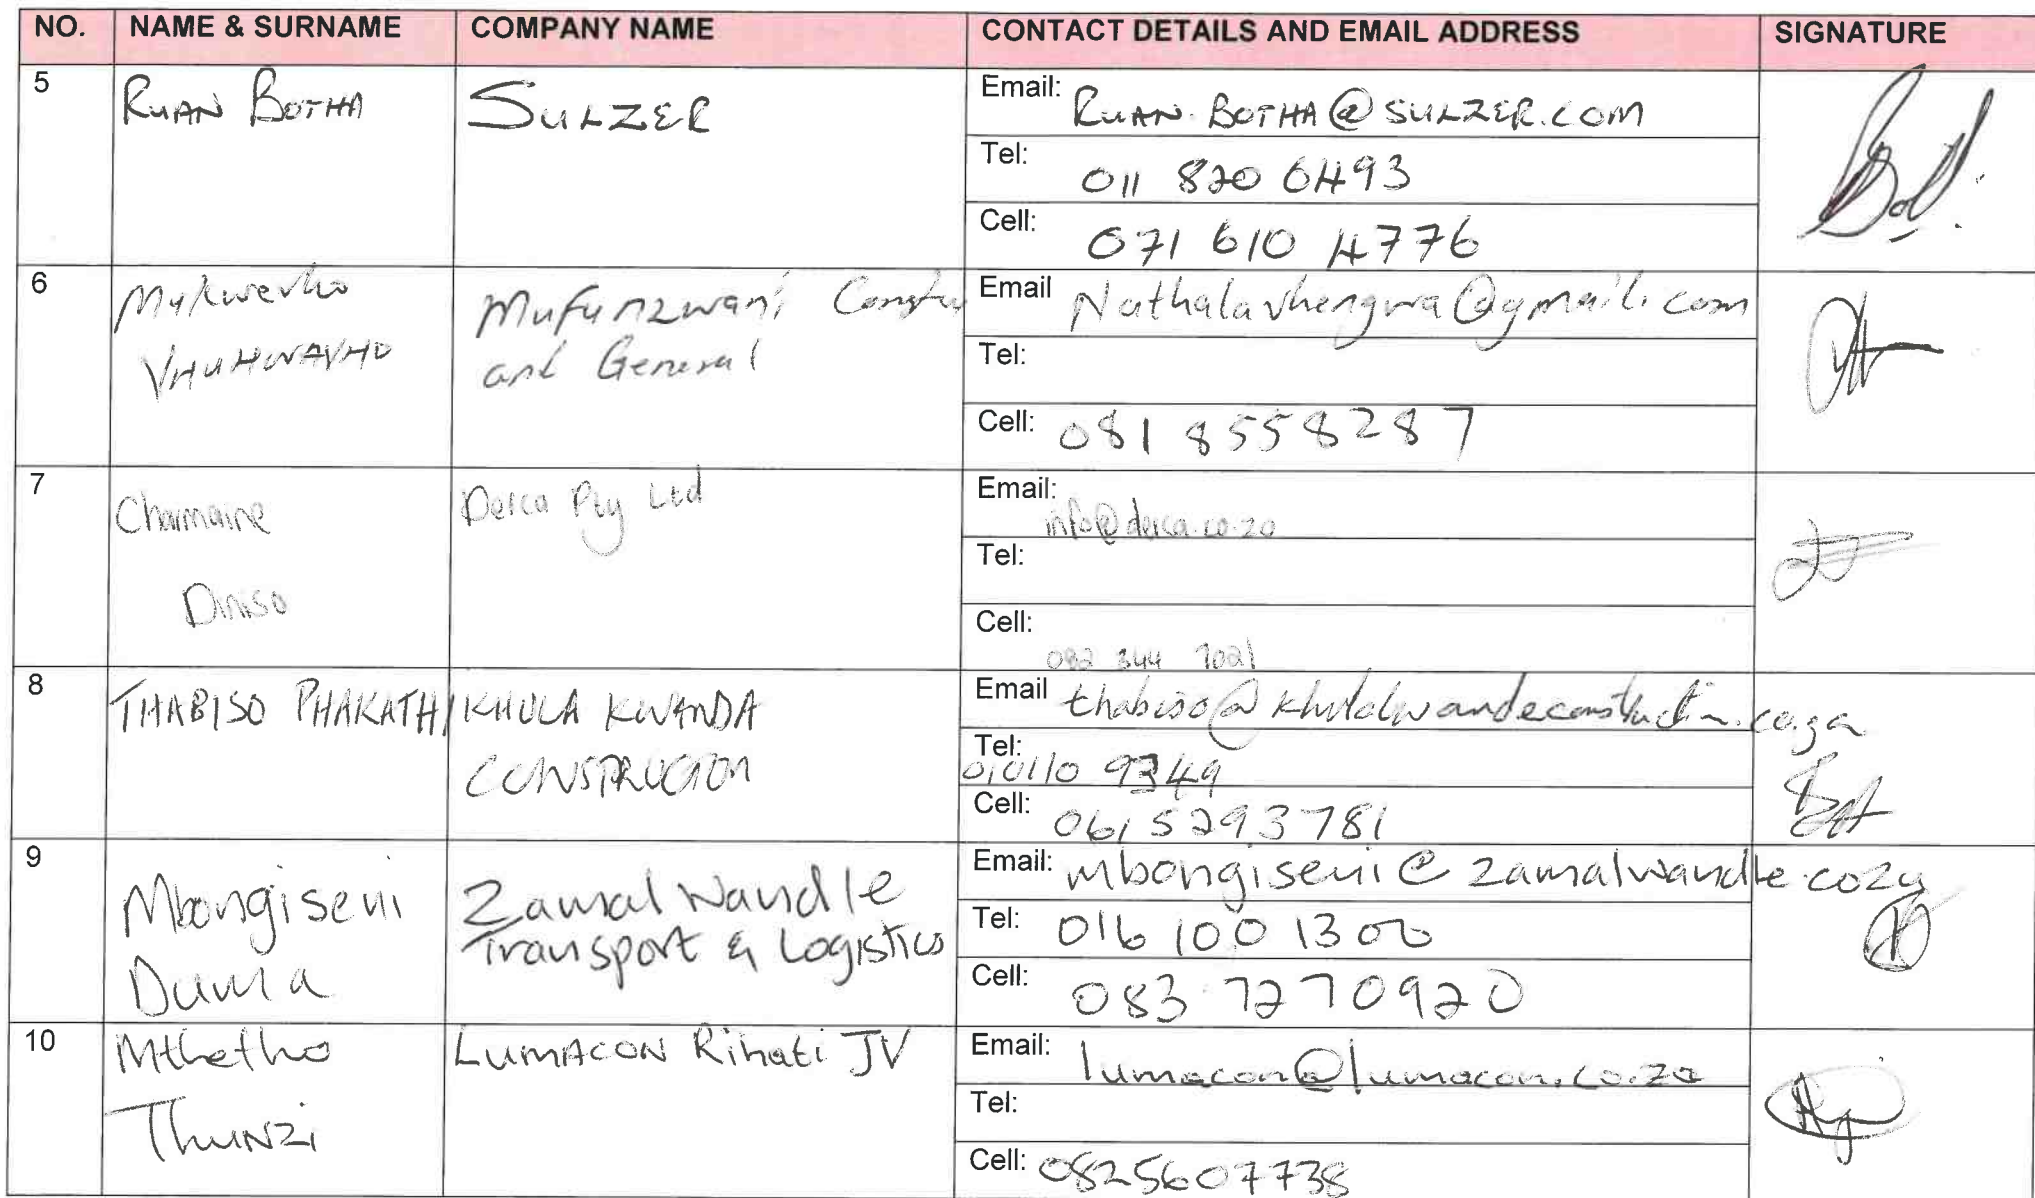 NO. NAME & SURNAME COMPANY NAME CONTACT DETAILS AND EMAIL ADDRESS SIGNATURE
5
RUAN BOTHA
SULZER
Email: RUAN.BOTHA@SULZER.COM
Tel: 011 820 6493
Cell: 071 610 4776
6
Mukwevho
VHUHWAVHO
Mufunzwani Constru
and General
Email Nathalavhengwa@gmail.com
Tel:
Cell: 081 8558287
7
Charmaine
Diniso
Derca Pty Ltd
Email: info@derca.co.za
Tel:
Cell: 082 344 7021
8
THABISO PHAKATHI
KHULA KWANDA
CONSTRUCTION
Email thabiso@khulakwandeconstruction.co.za
Tel: 010110 9349
Cell: 0615293781
9
Mbongiseni
Duma
Zamalwandle
Transport & Logistics
Email: mbongiseni@zamalwandle.coza
Tel: 016 100 1300
Cell: 083 7270920
10
Mthetho
Thunzi
LUMACON Rihati JV
Email: lumacon@lumacon.co.za
Tel:
Cell: 0825607738